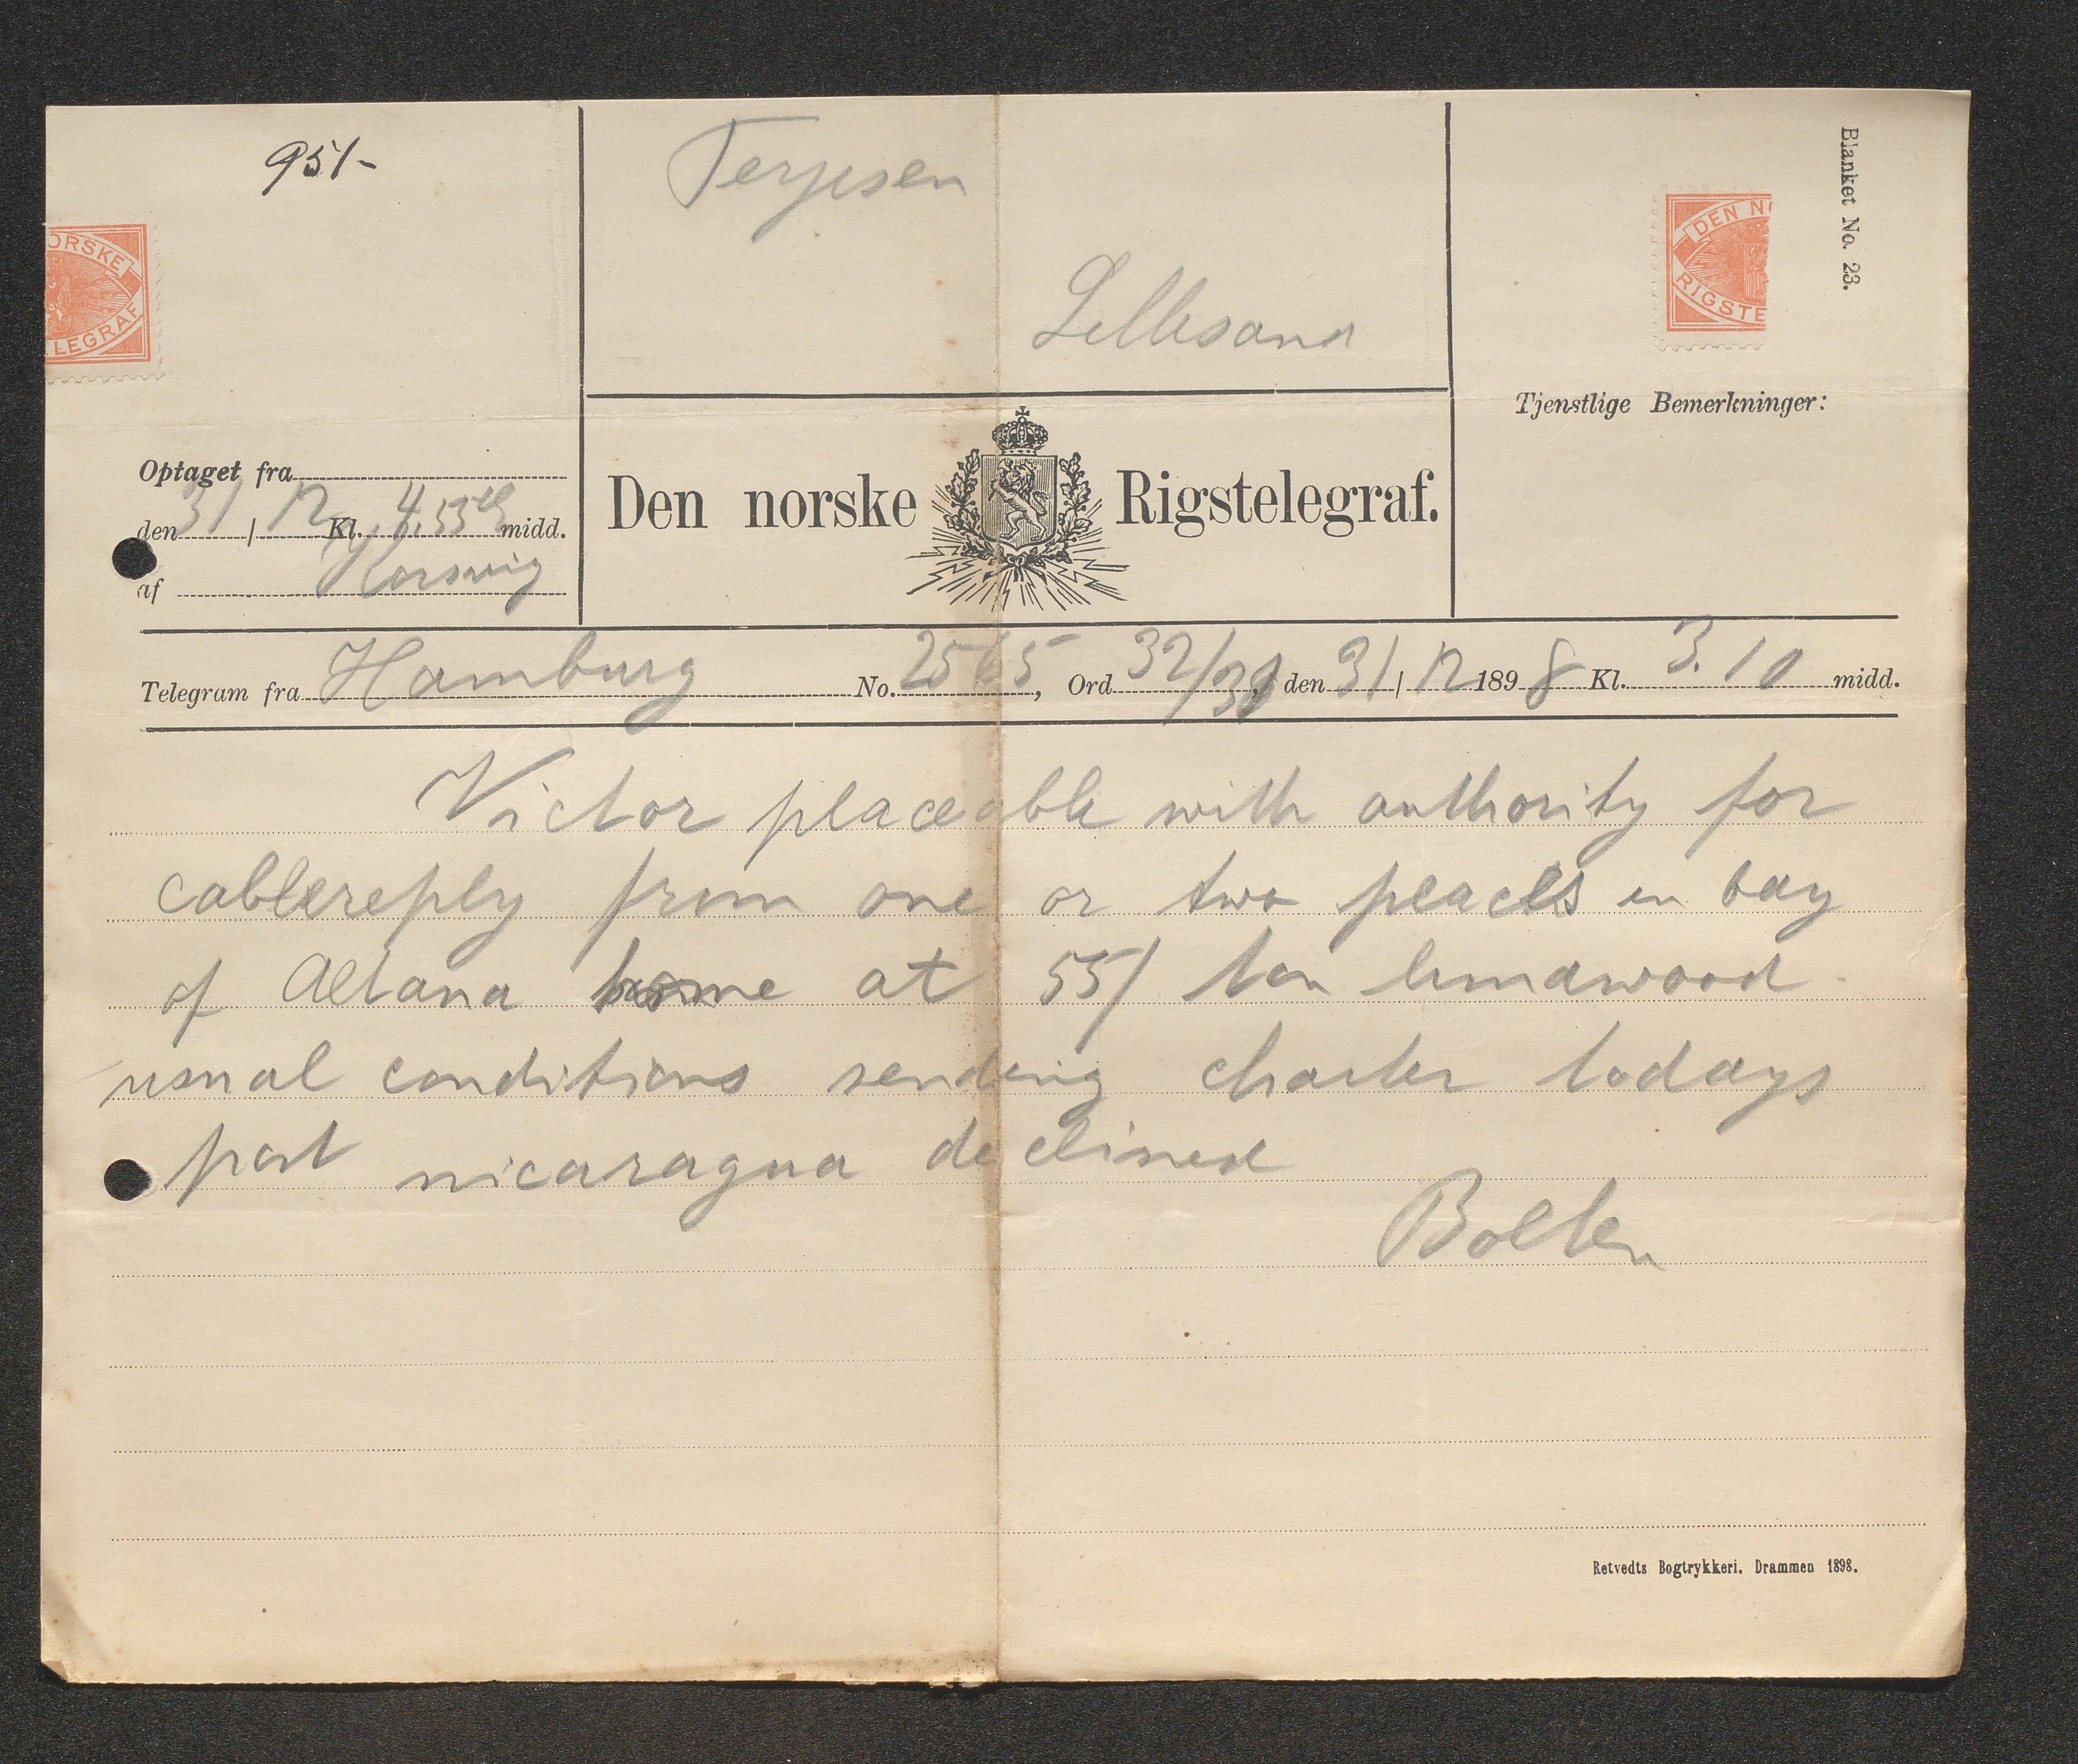 951-
Terjesen
Lillesand
Blanket No. 23.
ORSKE
LEGRAF
DEN N
RIGSTE
Tjenstlige Bemerkninger:
Optaget fra
den 31 / 12 Kl. 4.53 midd.
af
Den norske Rigstelegraf.
Telegram fra Hamburg No. 2565, Ord 32/30, den 31 / 12 1898 Kl. 3.10 midd.
Victor placeable with authority for
cablereply from one or two places in bay
of home at 55/ ton
usual conditions sending charter todays
post nicaragua declined
Bolten
Retvedts Bogtrykkeri. Drammen 1898.